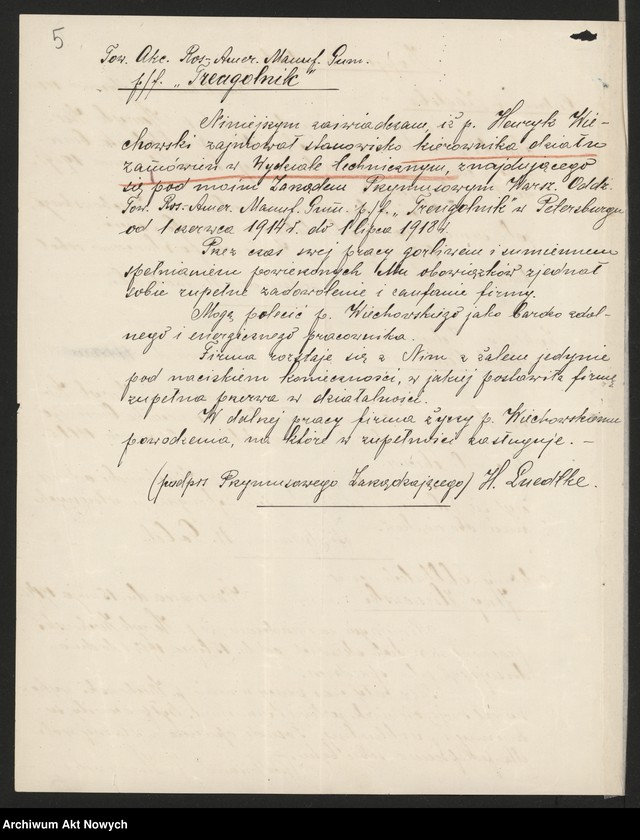 5
Tow. Akc. Ros-Amer. Manuf. Gum.
p/f. „Treugolnik"
Niniejszym zaświadczam, iż p. Henryk Wie-
chowski zajmował stanowisko kierownika działu
zamówień w Wydziale technicznym, znajdującego
się pod moim Zarządem Przymusowym Warsz. Oddz.
Tow. Ros.-Amer. Manuf. Gum. p/f. „Treugolnik" w Petersburgu
od 1 czerwca 1914 r. do 1 lipca 1918 r.
Przez czas swej pracy gorliwem i sumiennem
spełnianiem powierzonych Mu obowiązków zjednał
sobie zupełne zadowolenie i zaufanie firmy.
Mogę polecić p. Wiechowskiego jako bardzo zdol-
nego i energicznego pracownika.
Firma rozstaje się z Nim z żalem jedynie
pod naciskiem konieczności, w jakiej postawiła firmę
zupełna przerwa w działalności.
W dalszej pracy firma życzy p. Wiechowskiemu
powodzenia, na które w zupełności zasługuje. —
(podpis Przymusowego Zarządzającego) H. Luedtke.
Archiwum Akt Nowych